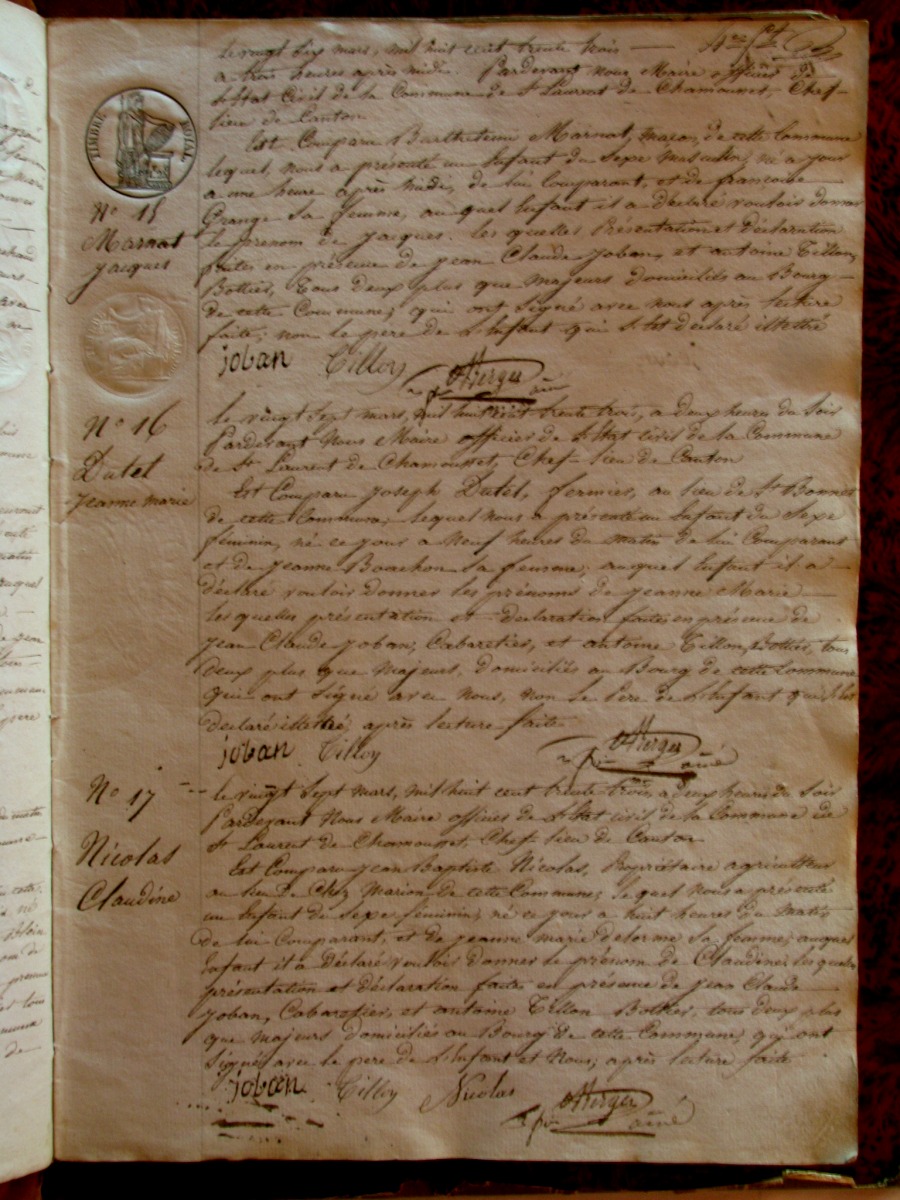 le vingt Six mars, mil huit cent trente trois
a trois heures après midi. Pardevant nous Maire officier de
l'Etat Civil de la Commune de St Laurent de Chamousset, Chef-
lieu de Canton
TIMBRE ROYAL
Est Comparu Barthelemi Marnat, maçon, de cette Commune
lequel, nous a présenté un Enfant du Sexe masculin, né a jour
a une heure après midi, de lui Comparant, et de francoise
N° 15
Grange Sa femme, au quel Enfant il a déclaré vouloir donner
Marnat
le prenom de Jacques. les quelles Présentation et déclaration
Jacques
faites en présence de Jean Claude Joban, et antoine Tillon,
Bottier, tous deux plus que majeurs domiciliés au Bourg
de cette Commune; qui ont Signé avec nous après lecture
faite; non le pere de l'Enfant qui S'est déclaré illettré
joban Tilloy Merger ainé
N° 16
le vingt Sept mars, mil huit cent trente trois, a deux heures du Soir
Pardevant Nous Maire officier de l'Etat civil de la Commune
Dutel
de St Laurent de Chamousset, Chef-lieu de Canton
Jeanne marie
Est Comparu Joseph Dutel, fermier, au lieu de St Bonnet
de cette Commune, lequel nous a présenté un Enfant du Sexe
féminin, né ce jour a Neuf heures du matin de lui Comparant
et de Jeanne Bouchon Sa femme, auquel Enfant il a
déclaré vouloir donner les prénoms de Jeanne Marie
les quelles présentation et déclaration faites en présence de
Jean Claude Joban, Cabaretier, et antoine Tillon, Bottier, tous
deux plus que Majeurs, domiciliés au Bourg de cette Commune
qui ont Signé avec nous, non le Pere de l'Enfant qui S'est
déclaré illettré, après lecture faite
joban Tilloy Merger ainé
N° 17
le vingt Sept mars, mil huit cent trente trois, a deux heures du Soir
Pardevant Nous Maire officier de l'Etat civil de la Commune de
St Laurent de Chamousset, Chef-lieu de Canton
Nicolas
Est Comparu Jean Baptiste Nicolas, Propriétaire agriculteur
Claudine
au lieu De Chez Marion de cette Commune; lequel nous a présenté
un Enfant du Sexe feminin, né ce jour a huit heures du Matin
de lui Comparant, et de Jeanne marie delorme Sa femme, auquel
Enfant il a Déclaré vouloir donner le prénom de Claudine, les quelles
présentation et déclaration faites en présence de Jean Claude
Joban, Cabaretier, et antoine Tillon Bottier, tous deux plus
que majeurs domiciliés au Bourg de cette Commune, qui ont
Signés avec le pere de l'Enfant et Nous, après lecture faite
joban Tilloy Nicolas Merger ainé